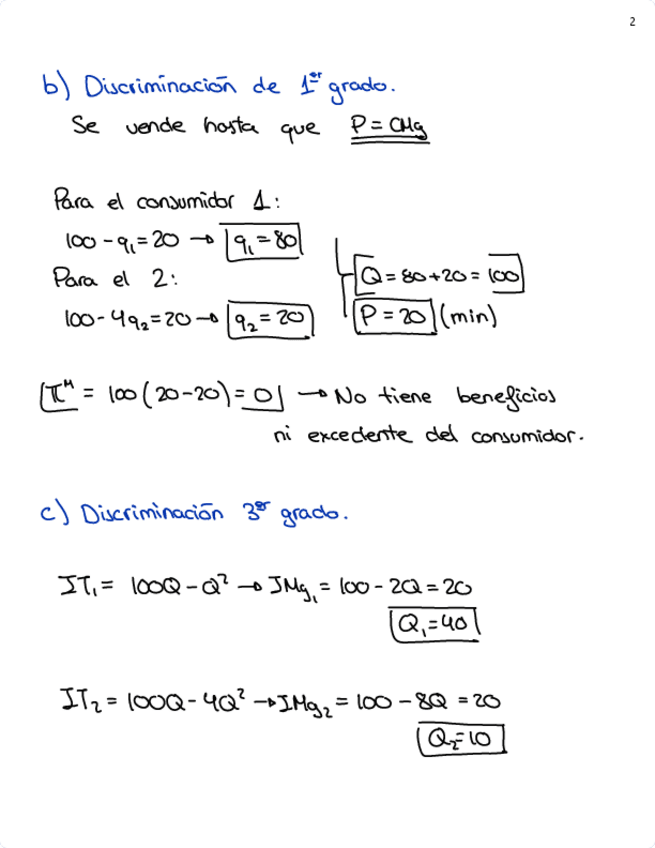 2
b) Discriminación de 1er grado.
Se vende hasta que P = CMg
Para el consumidor 1:
100 - q₁ = 20 → q₁ = 80
Para el 2:
100 - 4q₂ = 20 → q₂ = 20
Q = 80 + 20 = 100
P = 20 (min)
πᴹ = 100 (20 - 20) = 0 → No tiene beneficios
ni excedente del consumidor.
c) Discriminación 3er grado.
IT₁ = 100Q - Q² → IMg₁ = 100 - 2Q = 20
Q₁ = 40
IT₂ = 100Q - 4Q² → IMg₂ = 100 - 8Q = 20
Q₂ = 10